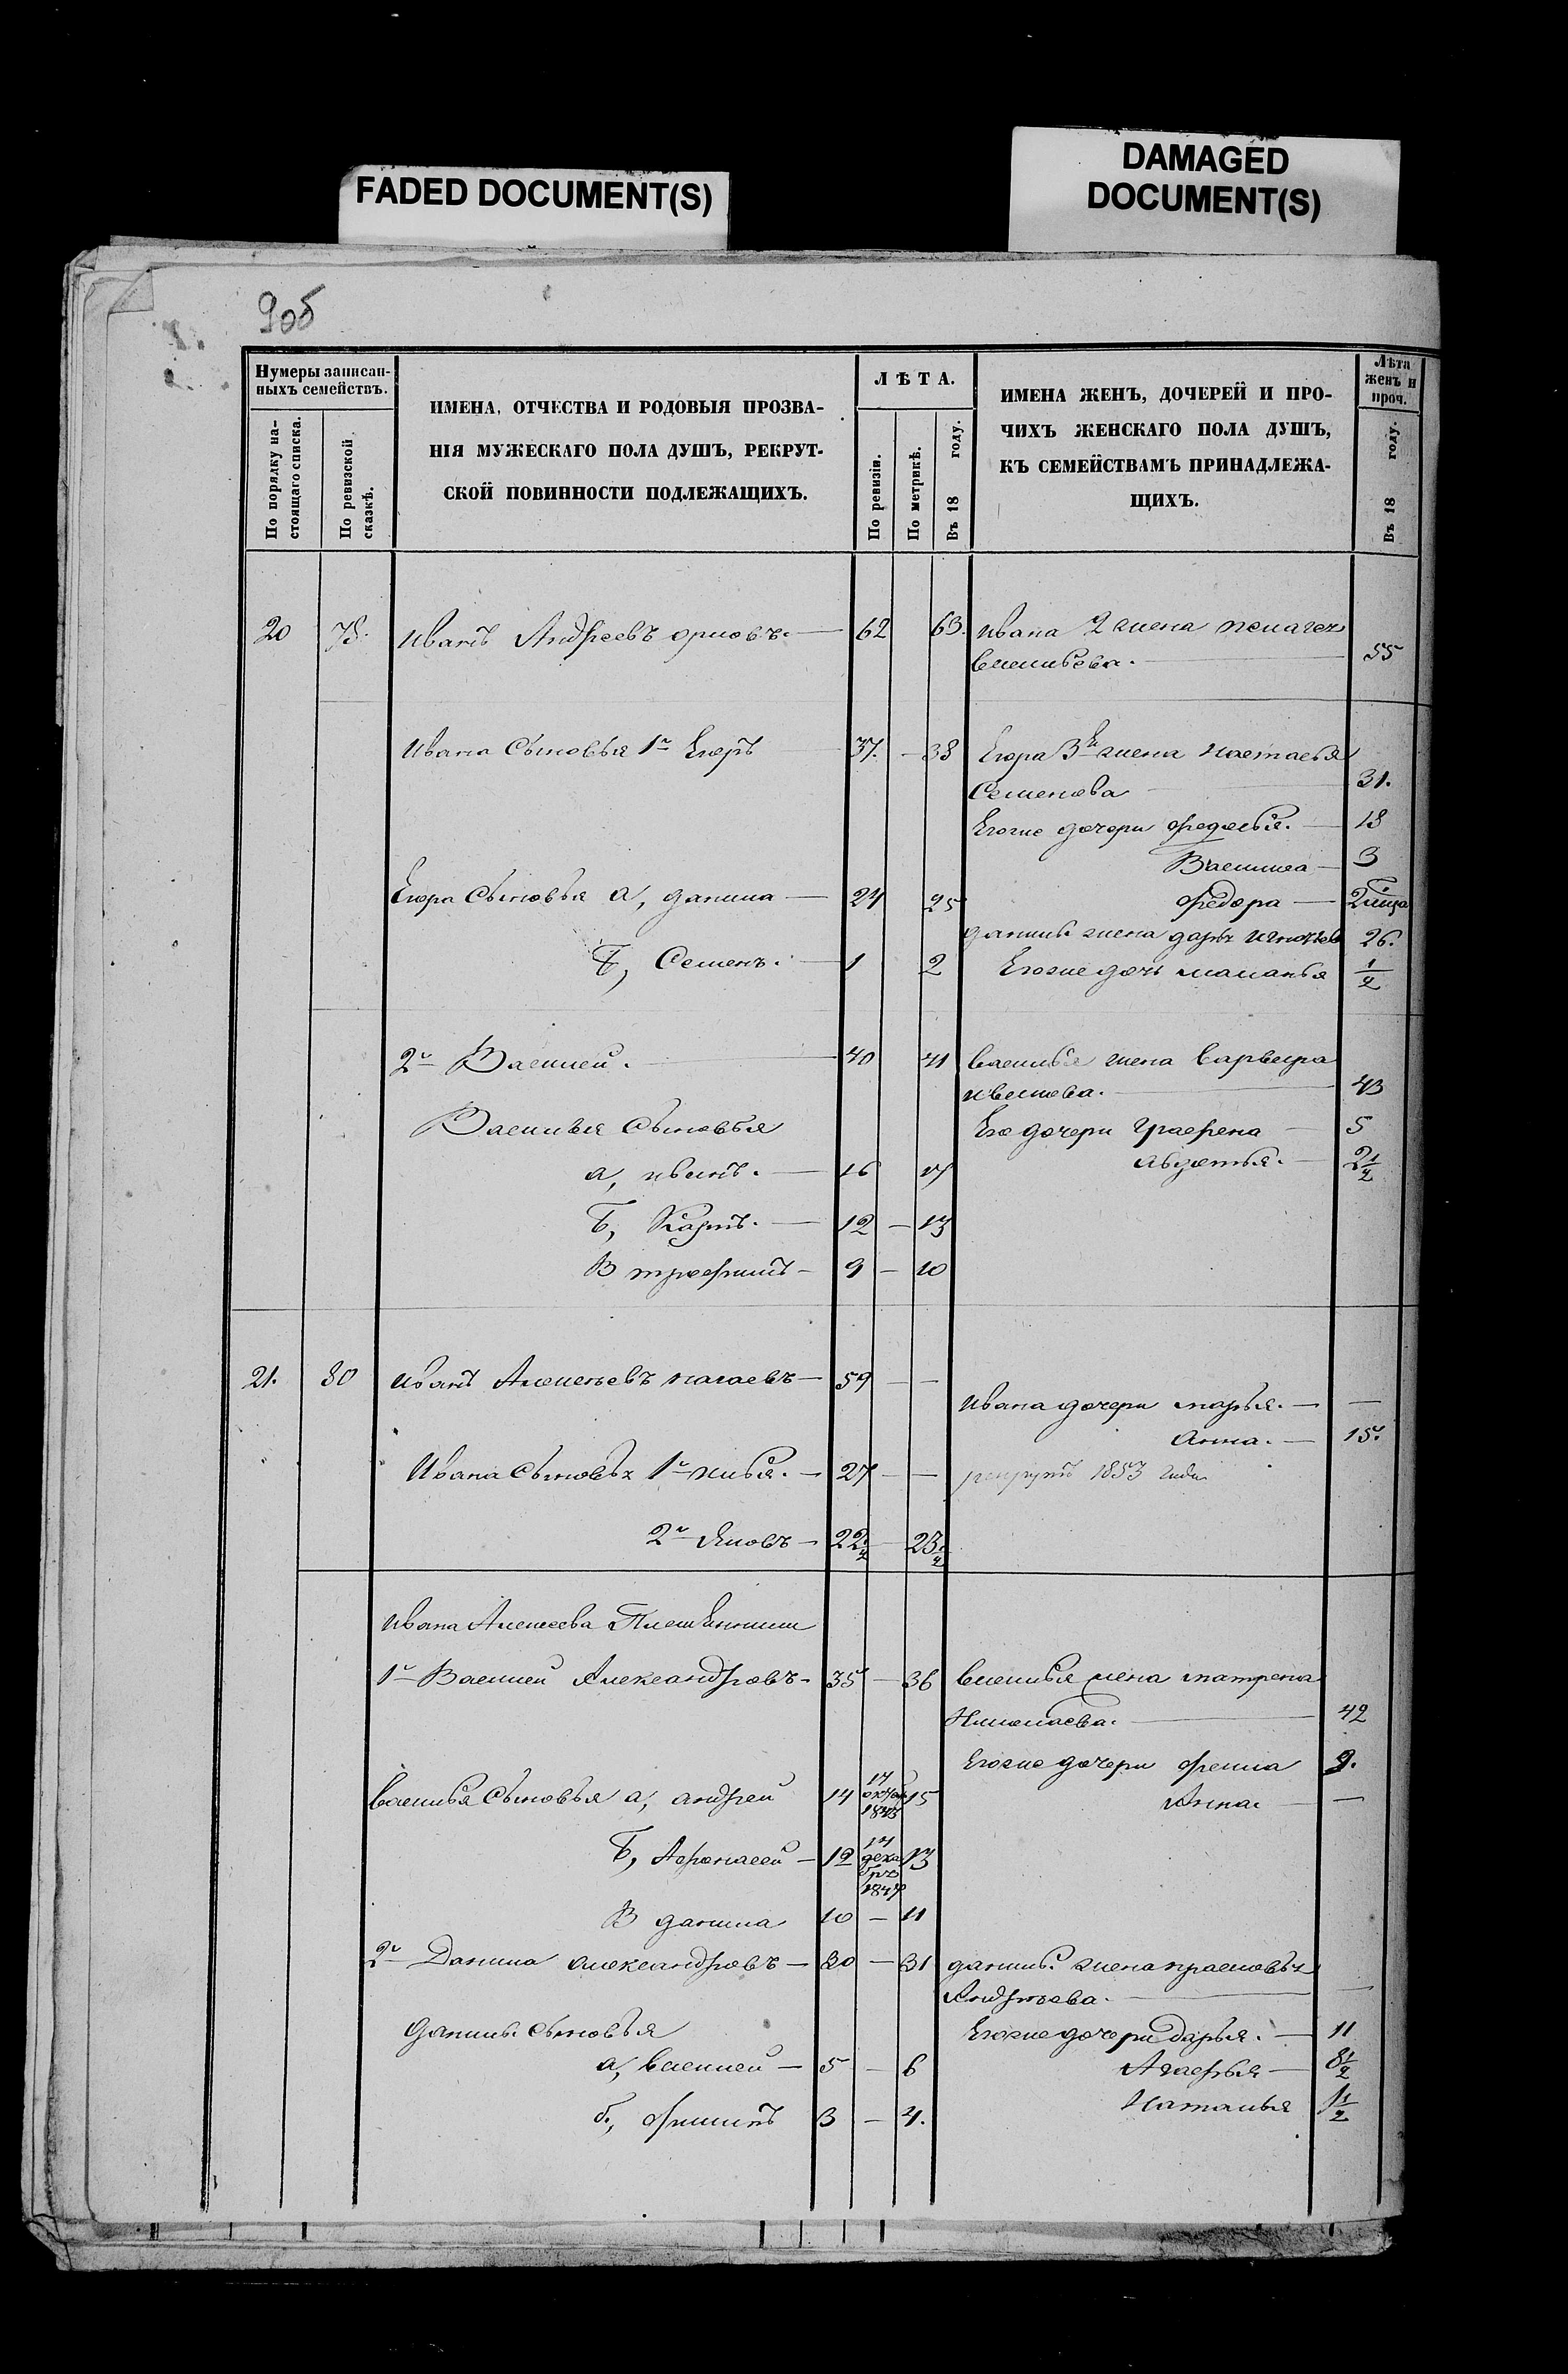 FADED DOCUMENT(S)
DAMAGED
DOCUMENT(S)
9об
Нумеры записан-
ныхъ семействъ.
По порядку на-
стоящаго списка.
По ревизской
сказкѣ.
ИМЕНА, ОТЧЕСТВА И РОДОВЫЯ ПРОЗВА-
НІЯ МУЖЕСКАГО ПОЛА ДУШЪ, РЕКРУТ-
СКОЙ ПОВИННОСТИ ПОДЛЕЖАЩИХЪ.
ЛѢТА.
По ревизіи.
По метрикѣ.
Въ 18 году.
ИМЕНА ЖЕНЪ, ДОЧЕРЕЙ И ПРО-
ЧИХЪ ЖЕНСКАГО ПОЛА ДУШЪ,
КЪ СЕМЕЙСТВАМЪ ПРИНАДЛЕЖА-
ЩИХЪ.
Лѣта
женъ и
проч.
Въ 18 году.
20 Иванъ Андреевъ орловъ. — 62 63. Ивана 2 жена пелагея
Васильева. — 55
Ивана Сыновья 1й Егоръ 37. — 38 Егора 3й жена настасья
Семенова 31.
Егоже дочери федосья. — 18
Василиса — 3
Егора Сыновья а, данила — 24 25 федора —
данилы жена дарья 26.
Б, Семенъ. — 1 2 Егоже дочь маланья 1/2
2й Василей. — 40 41 василья жена варвара
43
Василья Сыновья Его дочери Графена — 5
а, иванъ. — 16 17 авдотья. — 2 1/2
Б, Карпъ. — 12 — 13
В трофимъ — 9 — 10
21. 80 Иванъ Алексеевъ — 59 — —
Ивана дочери марья. — —
Анна. — 15.
Ивана Сыновья 1й илья. — 27 — — рекрутъ 1853 года
2й Яковъ — 22 1/2 — 23 1/2
Ивана Алексеева Племянники
1й Василей Александровъ — 35 — 36 василья жена матрена
Николаева. — 42
Егоже дочери 9.
василья Сыновья а, андрей 14 17 октяб 15 Анна — —
Б, Афонасей — 12 дека бря 1847 13
В данила 10 — 11
2й Данила александровъ — 30 — 31 данилы жена прасковья
Андреева. — —
Данилы сыновья Егоже дочери дарья. — 11
а, василей — 5 — 6 Агафья — 8 1/2
б, филипъ 3 — 4. Наталья 1 1/2